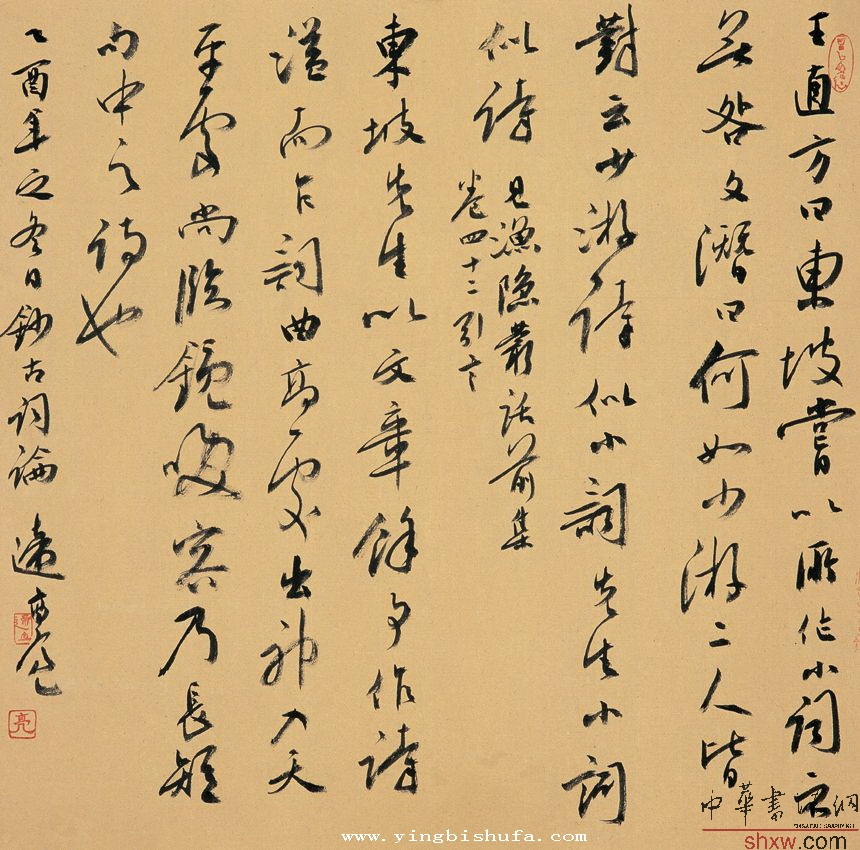 王直方曰東坡嘗以所作小詞示
無咎文潛曰何如少游二人皆
對云少游詩似小詞先生小詞
似詩
見漁隱叢話前集
卷四十二引
東坡先生以文章餘事作詩
溢而作詞曲高處出神入天
平處尚臨鏡咲乃長短
句中之詩也
乙酉年之冬日鈔古詞論
亮
中華書法網
shxw.com
www.yingbishufa.com